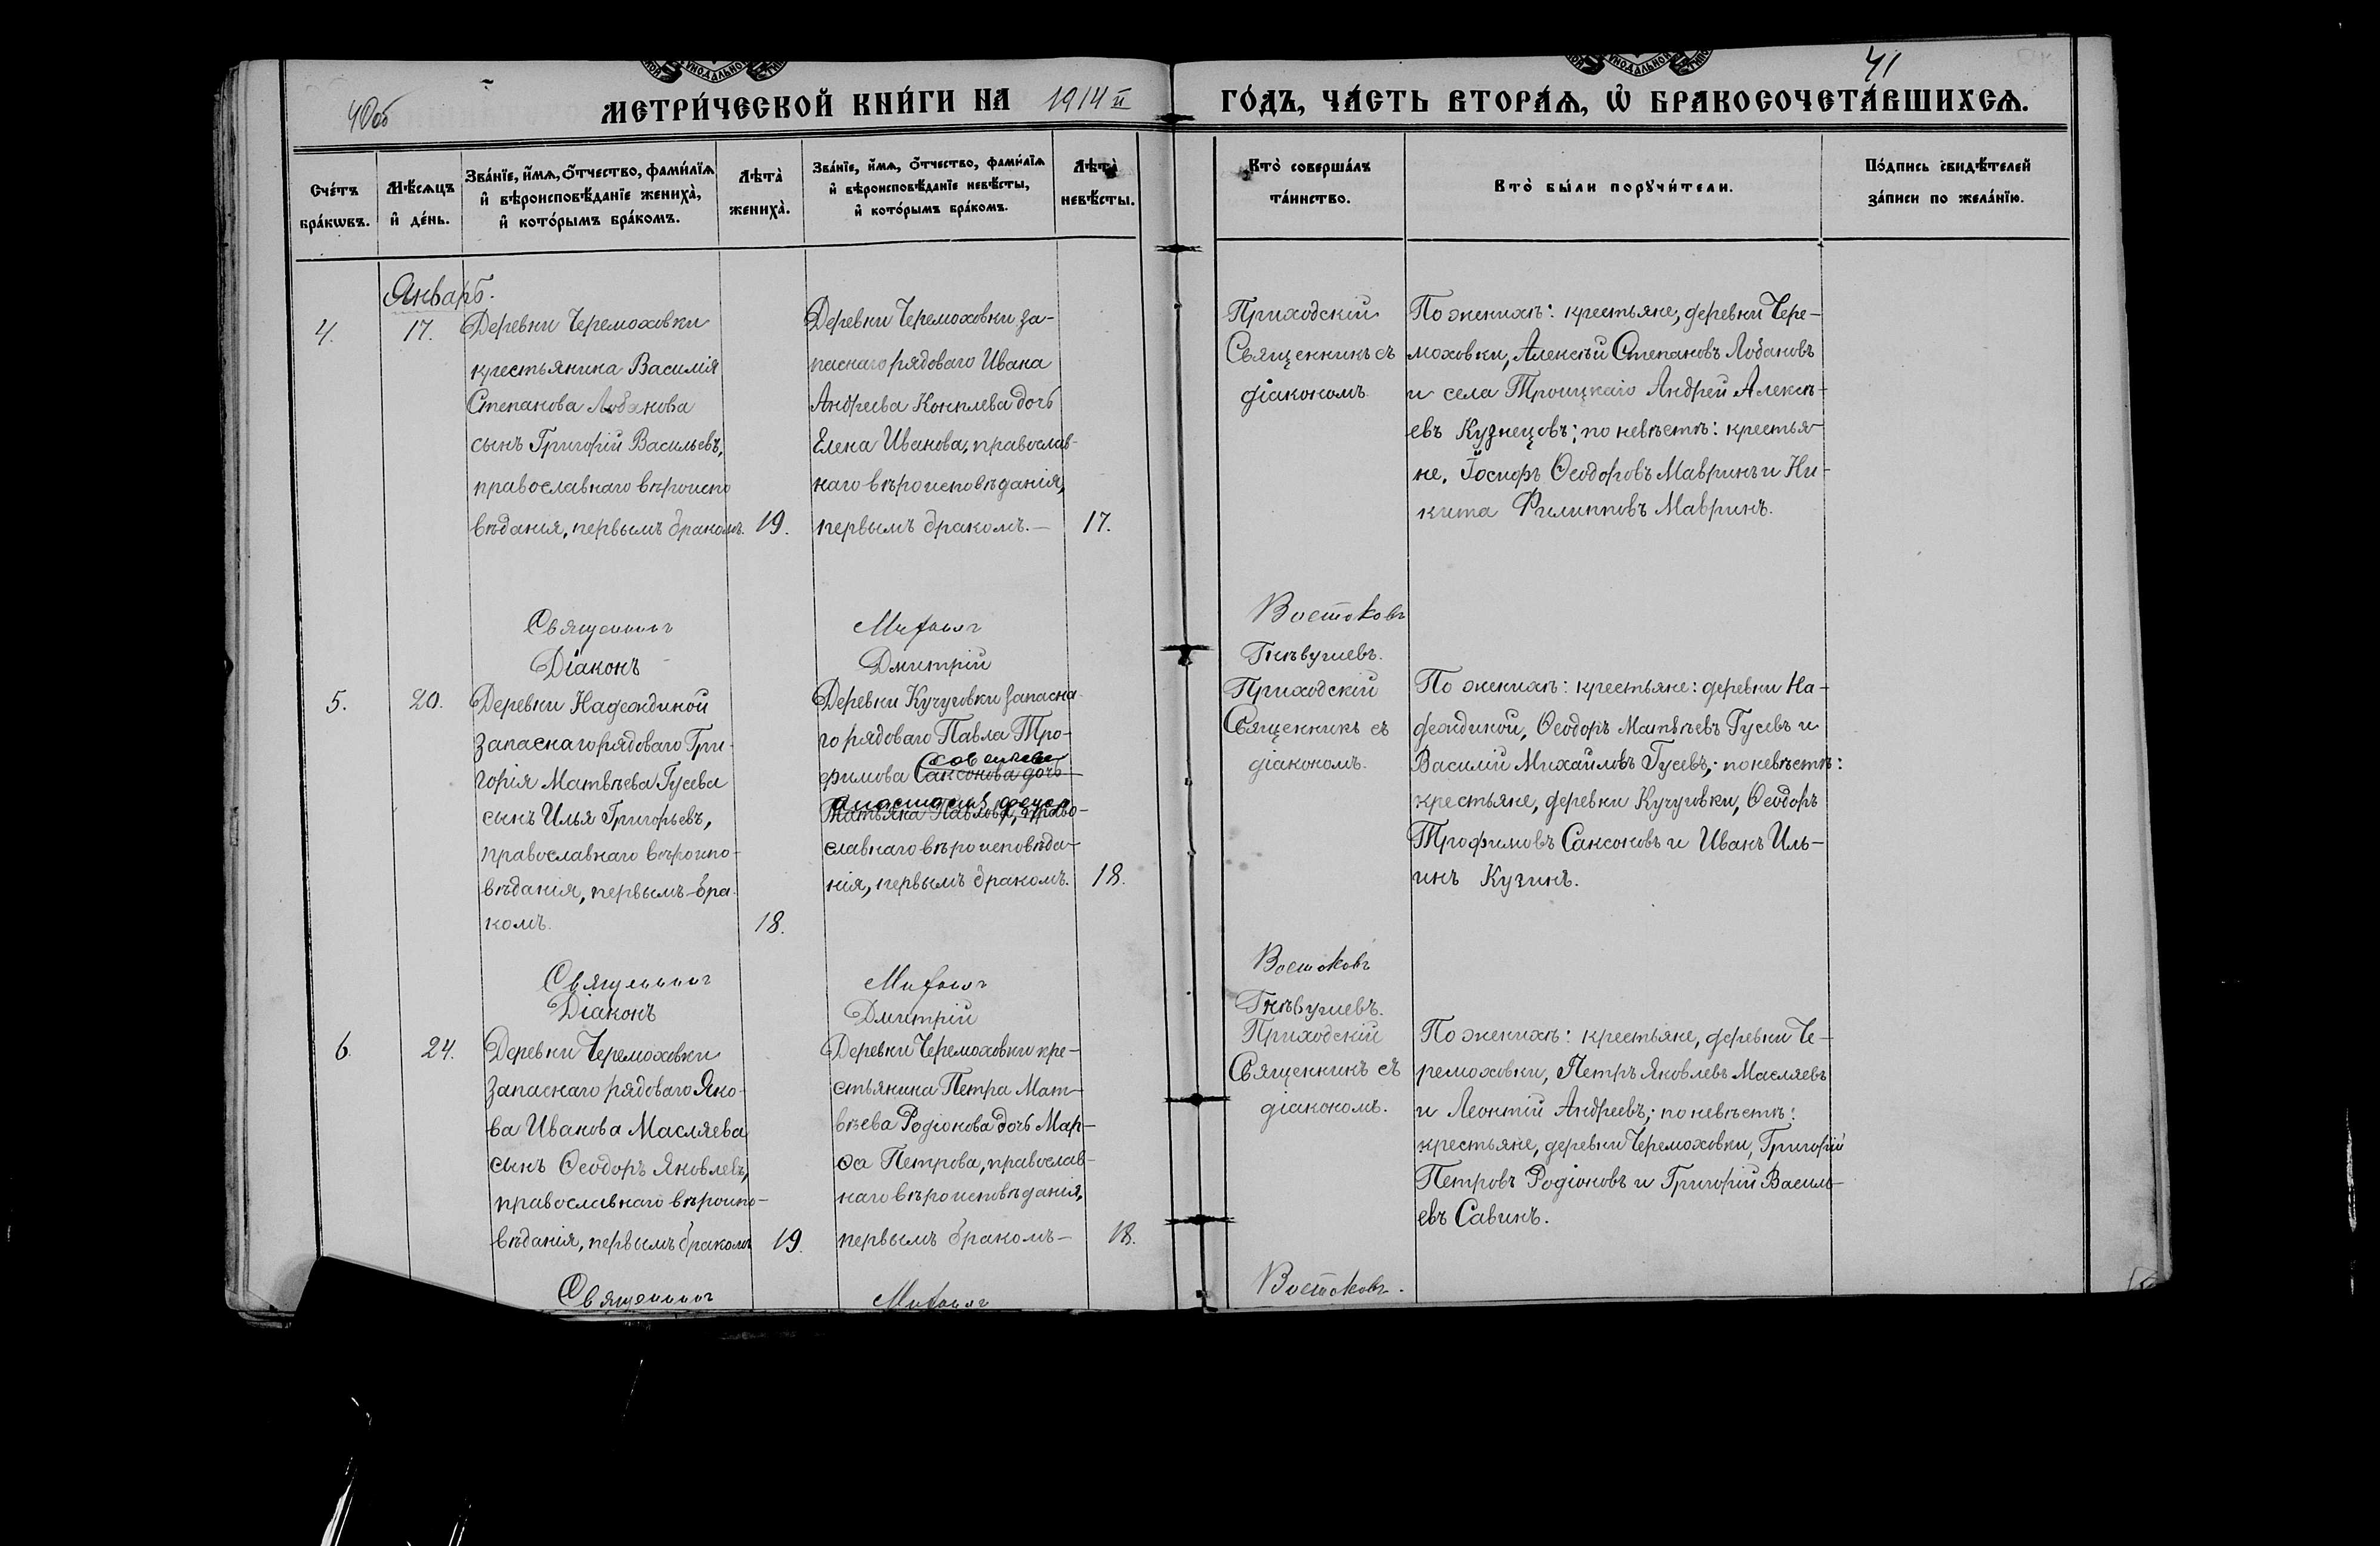 40об
МЕТРИ́ЧЕСКОЙ КНИ́ГИ НА 1914 й ГО́ДЪ, ЧА́СТЬ ВТОРА́Ѧ, Ѡ҆ БРАКОСОЧЕТА́ВШИХСѦ.
41
Сче́тъ
бра́кѡвъ.
Мѣ́сѧцъ
и҆ де́нь.
Зва́нїе, и҆́мѧ, о҆́тчество, фами́лїѧ
и҆ вѣроисповѣ́данїе жениха̀,
и҆ кото́рымъ бра́комъ.
Лѣта̀
жениха̀.
Зва́нїе, и҆́мѧ, о҆́тчество, фами́лїѧ
и҆ вѣроисповѣ́данїе невѣ́сты,
и҆ кото́рымъ бра́комъ.
Лѣта̀
невѣ́сты.
Кто̀ соверша́лъ
та́инство.
Кто̀ бы́ли порꙋчи́тели.
По́дпись свидѣ́телей
за́писи по жела́нїю.
Январь.
4.
17.
Деревни Черемоховки
крестьянина Василія
Степанова Лобанова
сынъ Григорій Васильевъ,
православнаго вѣроиспо
вѣданія, первымъ бракомъ.
19.
Деревни Черемоховки за-
паснаго рядоваго Ивана
Андреева Коннлева дочь
Елена Иванова, православ-
наго вѣроисповѣданія,
первымъ бракомъ.—
17.
Приходскій
Священникъ съ
діакономъ.
По женихѣ: крестьяне, деревни Чере-
моховки, Алексѣй Степановъ Лобановъ
и села Троицкаго Андрей Алексѣ-
евъ Кузнецовъ; по невѣстѣ: крестья-
не, Іосифъ Ѳеодоровъ Мавринъ и Ни-
кита Филипповъ Мавринъ.
Священникъ Михаилъ Востоковъ
Діаконъ Дмитрій Гнѣвушевъ.
5.
20.
Деревни Надеждиной
запаснаго рядоваго Гри-
горія Матвѣева Гусева
сынъ Илья Григорьевъ,
православнаго вѣроиспо-
вѣданія, первымъ бра-
комъ.
18.
Деревни Кучуговки запасна-
го рядоваго Павла Тро-
фимова Саксонова дочь
Анастасія
Татьяна Павлова, право-
славнаго вѣроисповѣда-
нія, первымъ бракомъ.
18.
Приходскій
Священникъ съ
діакономъ.
По женихѣ: крестьяне: деревни На-
деждиной, Ѳеодоръ Матвѣевъ Гусевъ и
Василій Михайловъ Гусевъ; по невѣстѣ:
крестьяне, деревни Кучуговки, Ѳеодоръ
Трофимовъ Саксоновъ и Иванъ Иль-
инъ Кузинъ.
Священникъ Михаилъ Востоковъ
Діаконъ Дмитрій Гнѣвушевъ.
6.
24.
Деревни Черемоховки
запаснаго рядоваго Яко-
ва Иванова Масляева
сынъ Ѳеодоръ Яковлевъ,
православнаго вѣроиспо-
вѣданія, первымъ бракомъ
19.
Деревни Черемоховки кре-
стьянина Петра Мат-
вѣева Родіонова дочь Мар-
ѳа Петрова, православ-
наго вѣроисповѣданія,
первымъ бракомъ—
18.
Приходскій
Священникъ съ
діакономъ.
По женихѣ: крестьяне, деревни Че-
ремоховки, Петръ Яковлевъ Масляевъ
и Леонтій Андреевъ; по невѣстѣ:
крестьяне, деревни Черемоховки, Григорій
Петровъ Родіоновъ и Григорій Василь-
евъ Савинъ.
Священникъ Михаилъ Востоковъ.